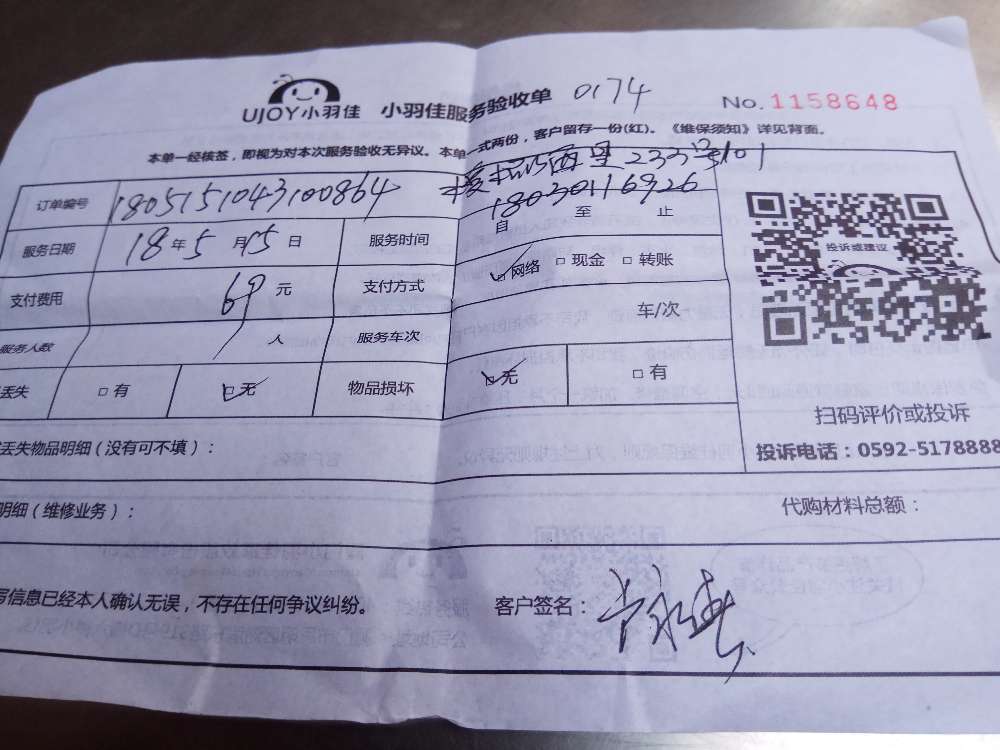 UJOY小羽佳 小羽佳服务验收单 0174 No. 1158648
本单一经核签，即视为对本次服务验收无异议。本单一式两份，客户留存一份(红)。《维保须知》详见背面。
233号101
订单编号 1805151043100864 18030116926
服务日期 18年5月15日 服务时间 自 至 止
支付费用 69元 支付方式 ☑网络 □现金 □转账
服务人数 1人 服务车次 车/次
丢失 □有 ☑无 物品损坏 ☑无 □有
投诉或建议
扫码评价或投诉
投诉电话：0592-5178888
丢失物品明细（没有可不填）：
明细（维修业务）： 代购材料总额：
写信息已经本人确认无误，不存在任何争议纠纷。 客户签名：